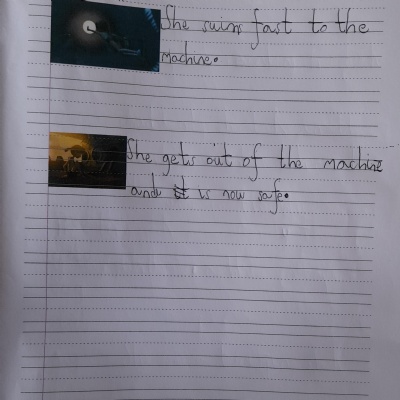 She suims fast to the
machine.
She gets out of the machine
and is now safe.